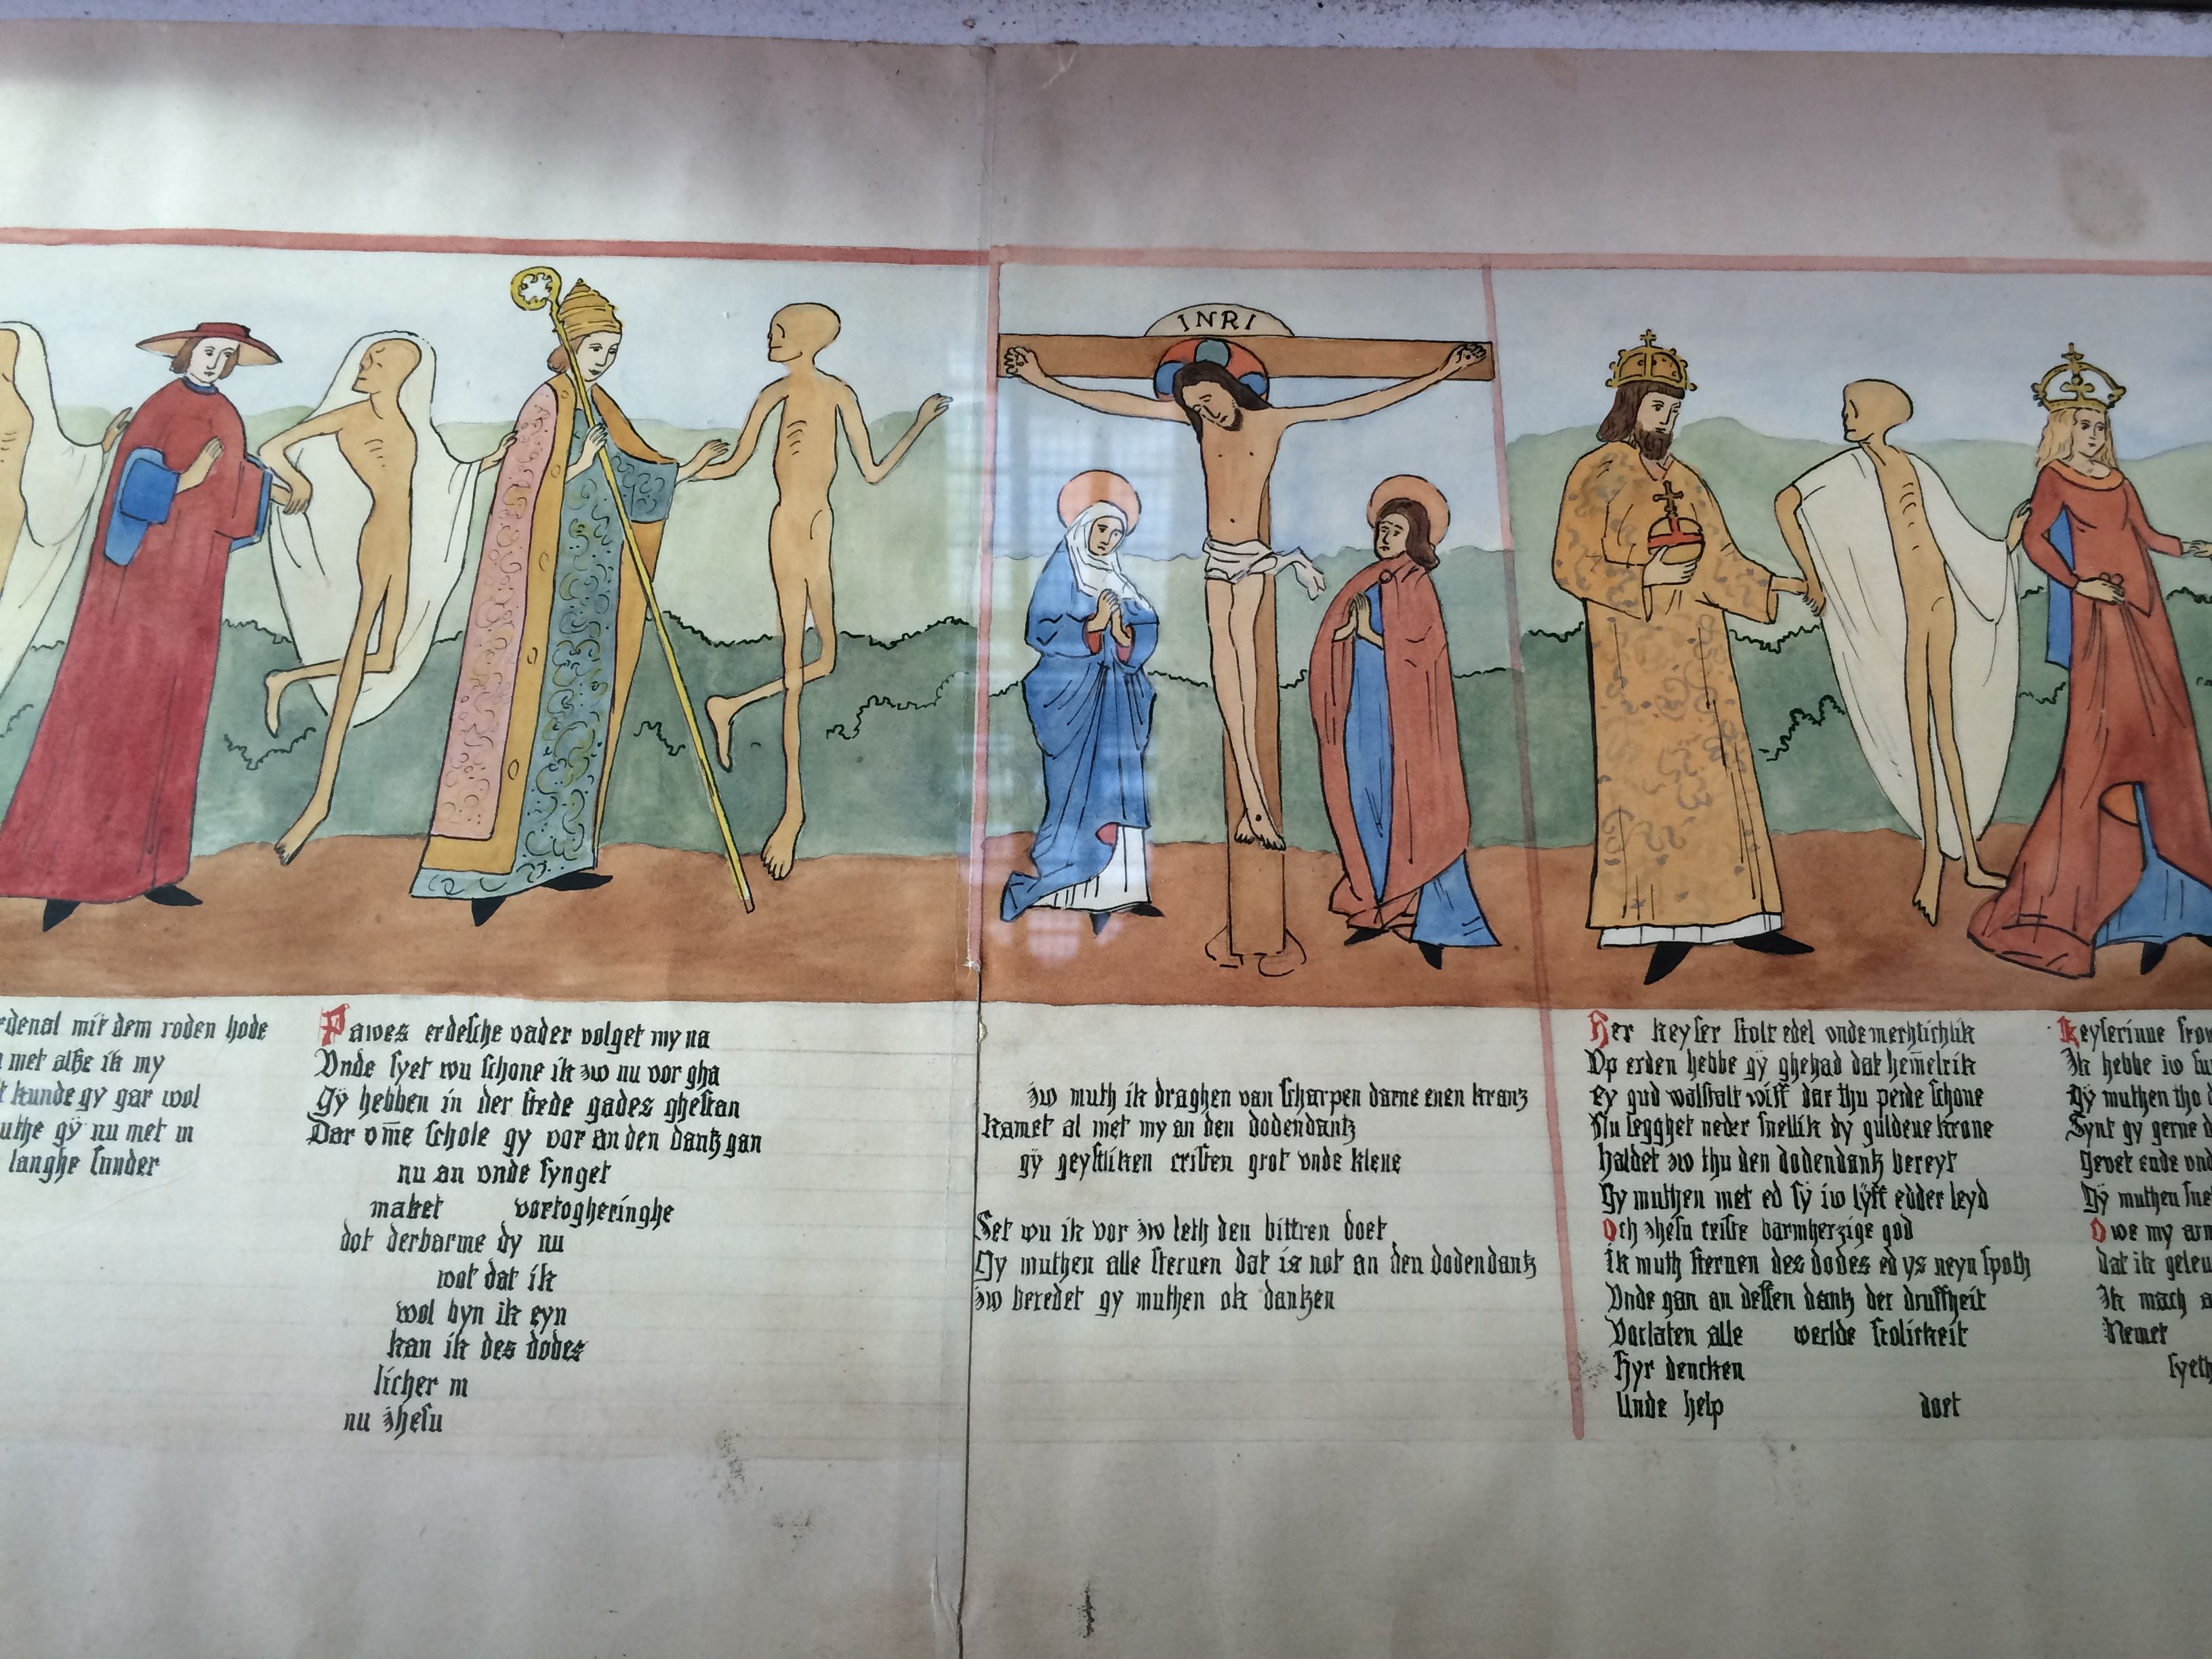 INRI
edenal mit dem roden hode
met alße ik my
kunde gy gar wol
uthe gÿ nu met m
langhe sunder
Pawes erdesche vader volget my na
Vnde syet wu schone ik zw nu vor gha
Gÿ hebben in der stede gades ghestan
Dar ōme schole gy vor an den dantz gan
nu an vnde synget
maket vortogheringhe
dot derbarme dy nu
wot dat ik
wol byn ik eyn
kan ik des dodes
licher m
nu zhesu
zw muth ik draghen van scharpen darne enen kranz
kamet al met my an den dodendantz
gÿ geystliken cristen grot vnde klene
Set wu ik vor zw leth den bittren doet
Gy muthen alle sternen dat is not an den dodendantz
zw beredet gy muthen ok dantzen
Her keyser stolt edel vnde merhtichlik
Vp erden hebbe gÿ ghehad dat hem̄elrik
ey gud walstalt wiff dar thu perde schone
Nu legghet neder snellik dy guldene krone
haldet zw thu den dodendantz bereyt
Gy muthen met ed sÿ iw lÿff edder leyd
Och zhesu criste barmherzige god
ik muth sternen des dodes ed ys neyn spoth
Vnde gan an dessen dantz der druffheit
Vorlaten alle werlde frolickeit
Hyr dencken
Unde help doet
Keyserinne frow
Ik hebbe iw
Gÿ muthen tho d
Synt gy gerne d
Gevet ende vnd
Gÿ muthen sne
Owe my arm
dat ik geleu
Ik mach a
Nemet
syeth